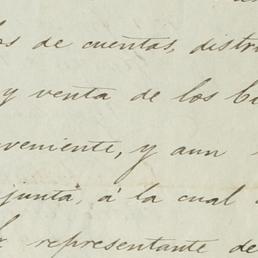 os de cuentas, distri
y venta de los bi
veniente, y aun
junta, á la cual
representante de